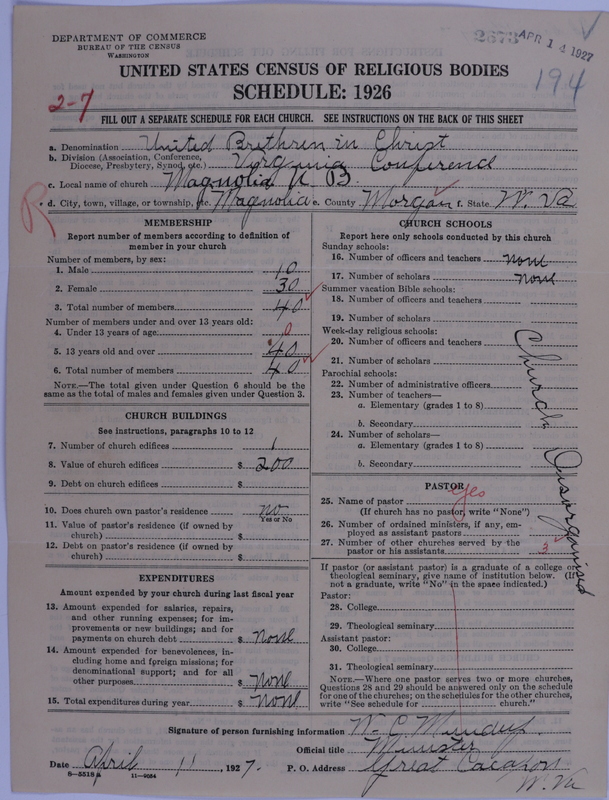 DEPARTMENT OF COMMERCE
BUREAU OF THE CENSUS
WASHINGTON
2673 APR 14 1927
194
UNITED STATES CENSUS OF RELIGIOUS BODIES
SCHEDULE: 1926
2-7
FILL OUT A SEPARATE SCHEDULE FOR EACH CHURCH. SEE INSTRUCTIONS ON THE BACK OF THIS SHEET
a. Denomination United Brethren in Christ
b. Division (Association, Conference, Diocese, Presbytery, Synod, etc.) Virginia Conference
c. Local name of church Magnolia U. B.
R
d. City, town, village, or township, etc. Magnolia e. County Morgan f. State W. Va
MEMBERSHIP
Report number of members according to definition of member in your church
Number of members, by sex:
1. Male 10
2. Female 30
3. Total number of members 40
Number of members under and over 13 years old:
4. Under 13 years of age: 0
5. 13 years old and over 40
6. Total number of members 40
NOTE.—The total given under Question 6 should be the
same as the total of males and females given under Question 3.
CHURCH BUILDINGS
See instructions, paragraphs 10 to 12
7. Number of church edifices 1
8. Value of church edifices $ 200
9. Debt on church edifices $
10. Does church own pastor's residence no
Yes or No
11. Value of pastor's residence (if owned by
church) $
12. Debt on pastor's residence (if owned by
church) $
EXPENDITURES
Amount expended by your church during last fiscal year
13. Amount expended for salaries, repairs,
and other running expenses; for im-
provements or new buildings; and for
payments on church debt $ None
14. Amount expended for benevolences, in-
cluding home and foreign missions; for
denominational support; and for all
other purposes $ None
15. Total expenditures during year $ None
CHURCH SCHOOLS
Report here only schools conducted by this church
Sunday schools:
16. Number of officers and teachers none
17. Number of scholars none
Summer vacation Bible schools:
18. Number of officers and teachers
19. Number of scholars
Week-day religious schools:
20. Number of officers and teachers
21. Number of scholars
Parochial schools:
22. Number of administrative officers
23. Number of teachers—
a. Elementary (grades 1 to 8)
b. Secondary
24. Number of scholars—
a. Elementary (grades 1 to 8)
b. Secondary
Church Disorganized
PASTOR
25. Name of pastor yes
(If church has no pastor, write "None")
26. Number of ordained ministers, if any, em-
ployed as assistant pastors
27. Number of other churches served by the
pastor or his assistants 3
If pastor (or assistant pastor) is a graduate of a college or
theological seminary, give name of institution below. (If
not a graduate, write "No" in the space indicated.)
Pastor:
28. College
29. Theological seminary
Assistant pastor:
30. College
31. Theological seminary
NOTE.—Where one pastor serves two or more churches,
Questions 28 and 29 should be answered only on the schedule
for one of the churches; on the schedules for the other churches,
write "See schedule for church."
Signature of person furnishing information W. C. Mundey
Official title Minister
Date April 11, 1927. P. O. Address Great Cacapon
W. Va
8—5518a 11—9064